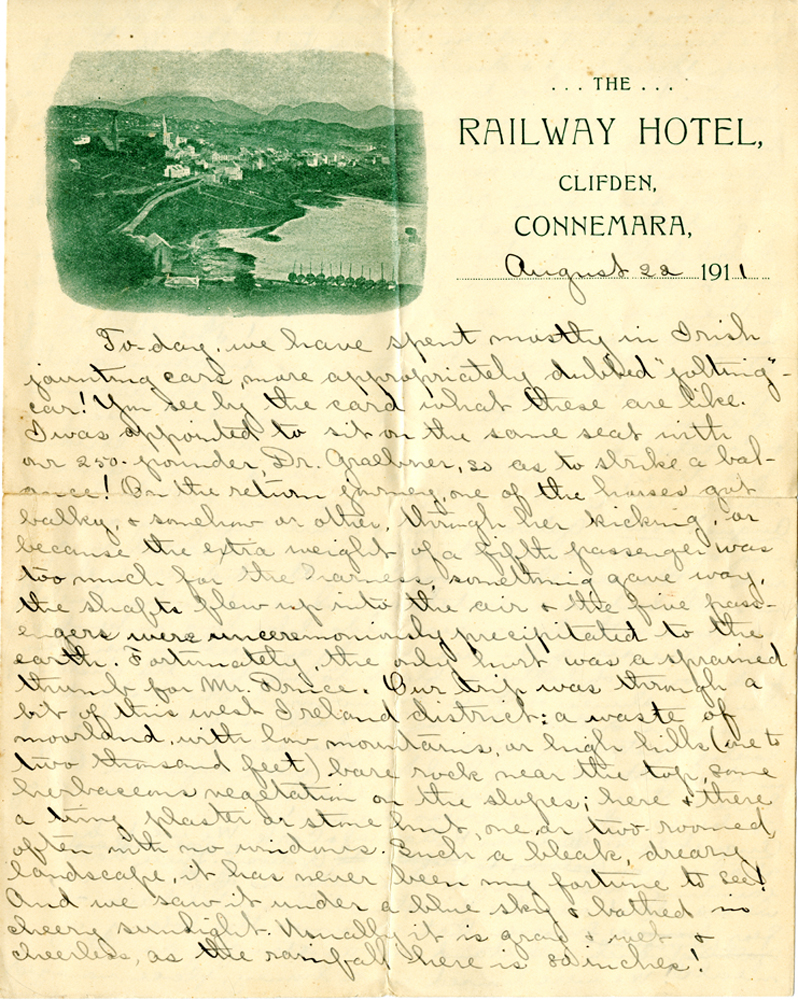 ... THE ...
RAILWAY HOTEL,
CLIFDEN,
CONNEMARA,
August 22 1911
To-day, we have spent mostly in Irish
jaunting cars, more appropriately dubbed "jolting"-
car! You see by the card what these are like.
I was appointed to sit on the same seat with
our 250-pounder, Dr. Graebner, so as to strike a bal-
ance! On the return journey, one of the horses got
balky, & somehow or other, through her kicking, or
because the extra weight of a fifth passenger was
too much for the harness, something gave way,
the shafts flew up into the air & the five pass-
engers were unceremoniously precipitated to the
earth. Fortunately, the only hurt was a sprained
thumb for Mr. Druce. Our trip was through a
bit of this west Ireland district: a waste of
moorland, with low mountains, or high hills (one to
two thousand feet) bare rock near the top, some
herbaceous vegetation on the slopes; here & there
a tiny plaster or stone hut, one or two-roomed,
often with no windows. Such a bleak, dreary
landscape, it has never been my fortune to see!
And we saw it under a blue sky & bathed in
cheery sunlight. Usually it is gray & wet &
cheerless, as the rainfall here is 80 inches!